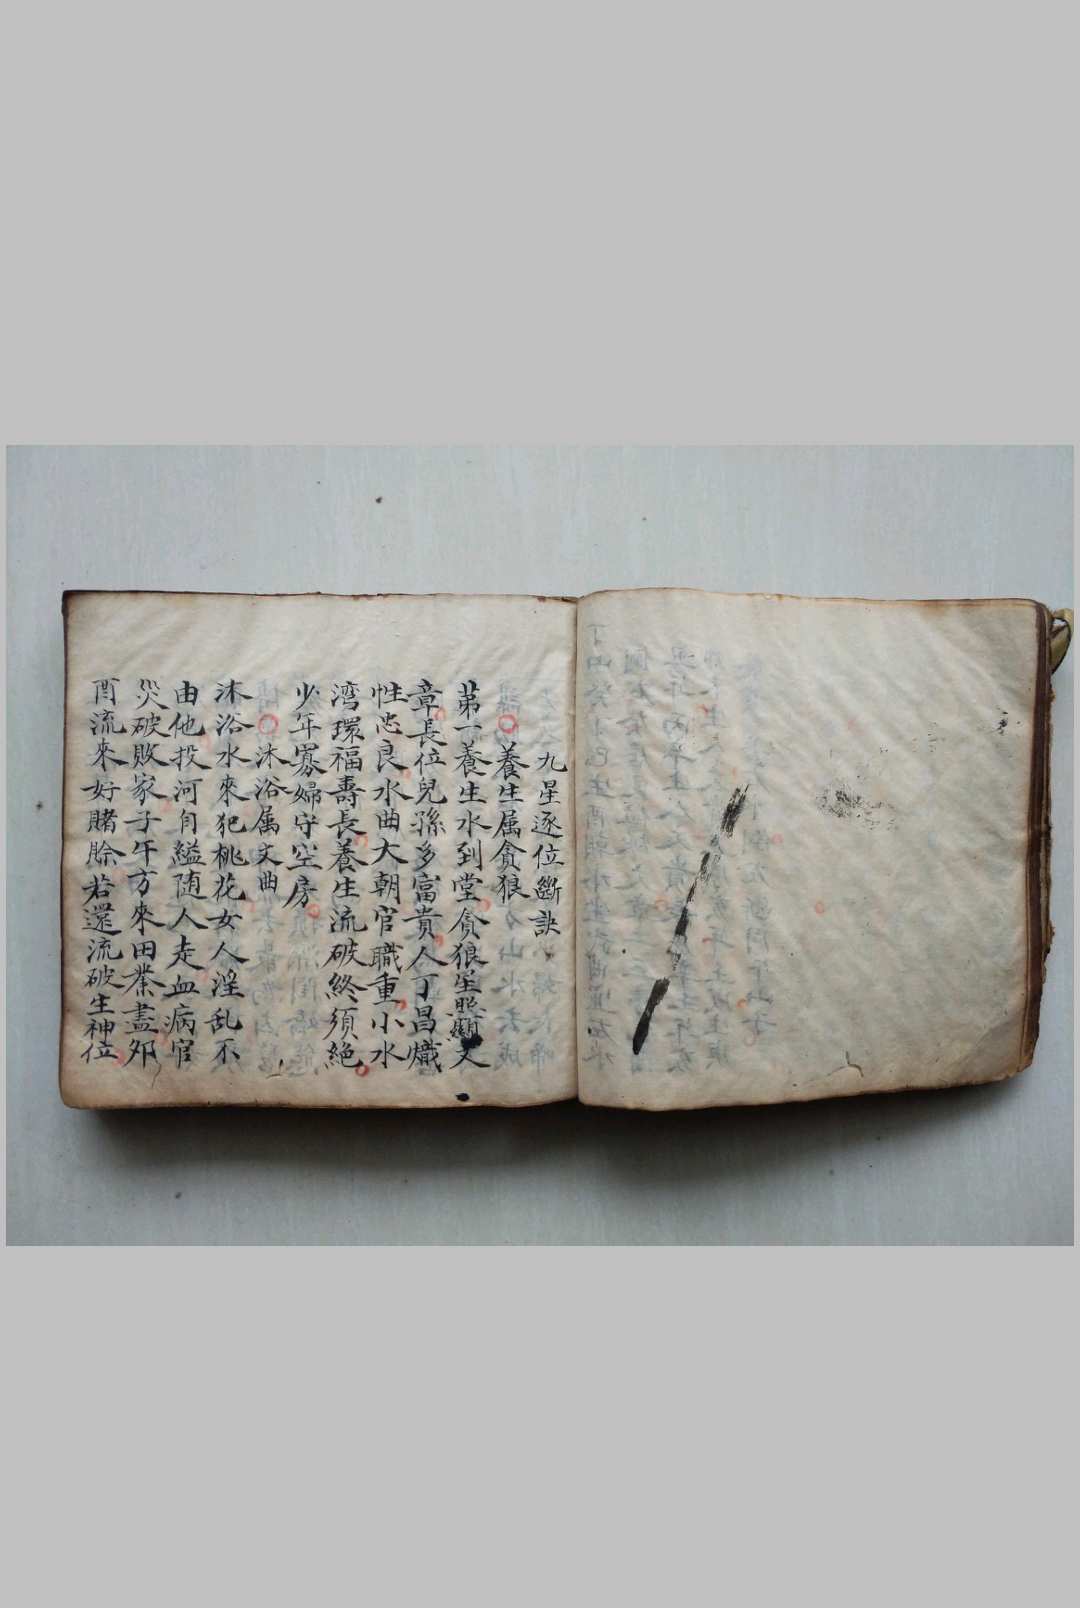 九星逐位斷訣
養生属貪狼
第一養生水到堂貪狼星照顯文
章長位兒孫多富貴人丁昌熾
性忠良水曲大朝官職重小水
湾環福壽長養生流破終須絕
少年寡婦守空房
沐浴属文曲
沐浴水來犯桃花女人淫乱不
由他投河自縊随人走血病官
災破敗家子午方來田業盡夘
酉流來好賭賒若還流破生神位